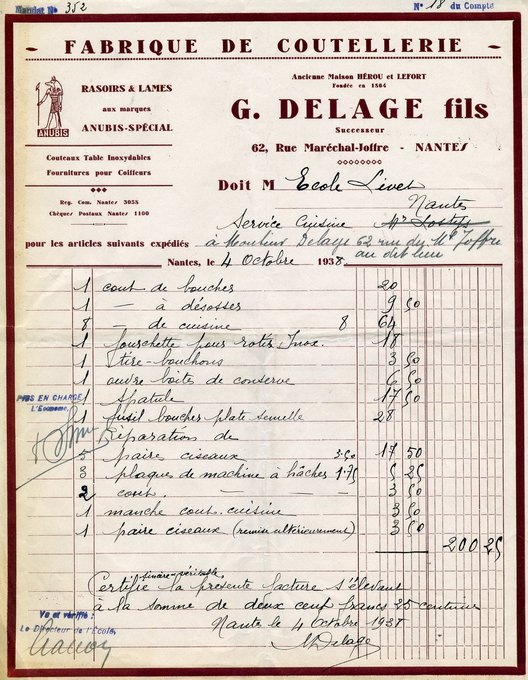 Mandat No 352
No 18 du Compte
- FABRIQUE DE COUTELLERIE -
ANUBIS
RASOIRS & LAMES
aux marques
ANUBIS-SPÉCIAL
Couteaux Table Inoxydables
Fournitures pour Coiffeurs
Reg. Com. Nantes 3055
Chèques Postaux Nantes 1100
Ancienne Maison HÉROU et LEFORT
Fondée en 1864
G. DELAGE fils
Successeur
62, Rue Maréchal-Joffre - NANTES
Doit M Ecole Livet
Nantes
Service Cuisine
pour les articles suivants expédiés à Monsieur Delage 62 rue du Mal Joffre
au dit lieu
Nantes, le 4 Octobre 1938
1 cout de bouchers 20
1 — à désosser 9 50
8 — de cuisine 8 64
1 fourchette pour rotis Inox. 18
1 tire-bouchons 3 50
1 ouvre boites de conserve 6 50
1 spatule 17 50
1 fusil boucher plate semelle 28
Réparation de
5 paire ciseaux 3.50 17 50
3 plaques de machine à hâcher 1.75 5 25
2 cout. — — — 3 50
1 manche cout. cuisine 3 50
1 paire ciseaux (remise ultérieurement) 3 50
200 25
PRIS EN CHARGE
L'Econome,
Certifie sincère-véritable la présente facture s'élevant
à la somme de deux cent francs 25 centimes
Nantes le 4 Octobre 1938
Delage
Vu et vérifié :
Le Directeur de l'École,